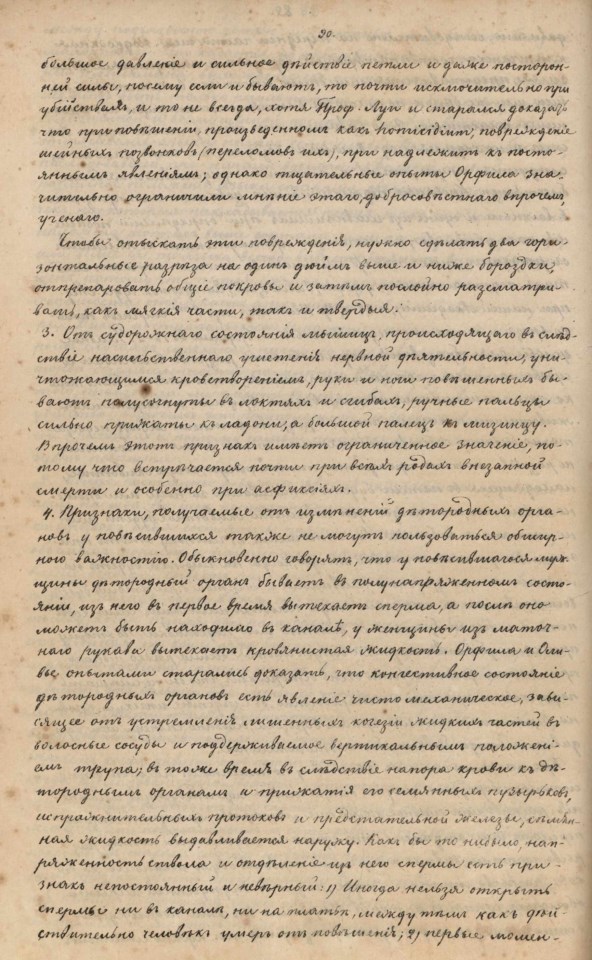 90.
большое давленіе и сильное дѣйствіе петли и даже посторон-
ней силы, посему если и бываютъ, то почти исключительно при
убійствахъ, и то не всегда, хотя Проф. Луи и старался доказать
что при повѣшеніи, произведенномъ какъ homicidium, поврежденіе
шейныхъ позвонковъ (переломовъ ихъ), принадлежитъ къ посто-
яннымъ явленіямъ; однако тщательные опыты Орфила зна-
чительно ограничили мнѣніе этаго, добросовѣстнаго впрочемъ,
ученаго.
Чтобы отыскать эти поврежденія, нужно сдѣлать два гори-
зонтальные разрѣза на одинъ дюймъ выше и ниже бороздки,
отпрепаровать общіе покровы и затѣмъ послойно разсматри-
вать, какъ мягкія части, такъ и твердыя.
3. Отъ судорожнаго состоянія мышицъ, происходящаго въ слѣд-
ствіе насильственнаго угнетенія нервной дѣятельности, уни-
чтожающимся кровотвореніемъ, руки и ноги повѣшенныхъ бы-
ваютъ полусогнуты въ локтяхъ и сгибахъ, ручные пальцы
сильно прижаты къ ладони, а большой палецъ къ мизинцу.
Впрочемъ этотъ признакъ имѣетъ ограниченное значеніе, по-
тому что встрѣчается почти при всѣхъ родахъ внезапной
смерти и особенно при асфиксіяхъ.
4. Признаки, получаемые отъ измѣненій дѣтородныхъ орга-
новъ у повѣсившихся также не могутъ пользоваться обшир-
ною важностію. Обыкновенно говорятъ, что у повѣсившагося муж-
щины дѣтородный органъ бываетъ въ полунапряженномъ состо-
яніи, изъ него въ первое время вытекаетъ сперма, а послѣ оно
можетъ быть находимо въ каналѣ, у женщины изъ маточ-
наго рукава вытекаетъ кровянистая жидкость. Орфила и
опытами старались доказать, что конгестивное состояніе
дѣтородныхъ органовъ есть явленіе чисто механическое, зави-
сящее отъ устремленія лишенныхъ когезіи жидкихъ частей въ
волосные сосуды и поддерживаемое вертикальнымъ положені-
емъ трупа; въ тоже время въ слѣдствіе напора крови къ дѣ-
тороднымъ органамъ и прижатія его семянныхъ пузырьковъ,
испражнительныхъ протоковъ и предстательной железы, сѣмян-
ная жидкость выдавливается наружу. Какъ бы то нибыло, нап-
ряженность ствола и отдѣленіе изъ него спермы есть при-
знакъ непостоянный и невѣрный: 1) Иногда нельзя открыть
спермы ни въ каналѣ, ни на платьѣ, между тѣмъ какъ дѣй-
ствительно человѣкъ умеръ отъ повѣшенія; 2) первые момен-